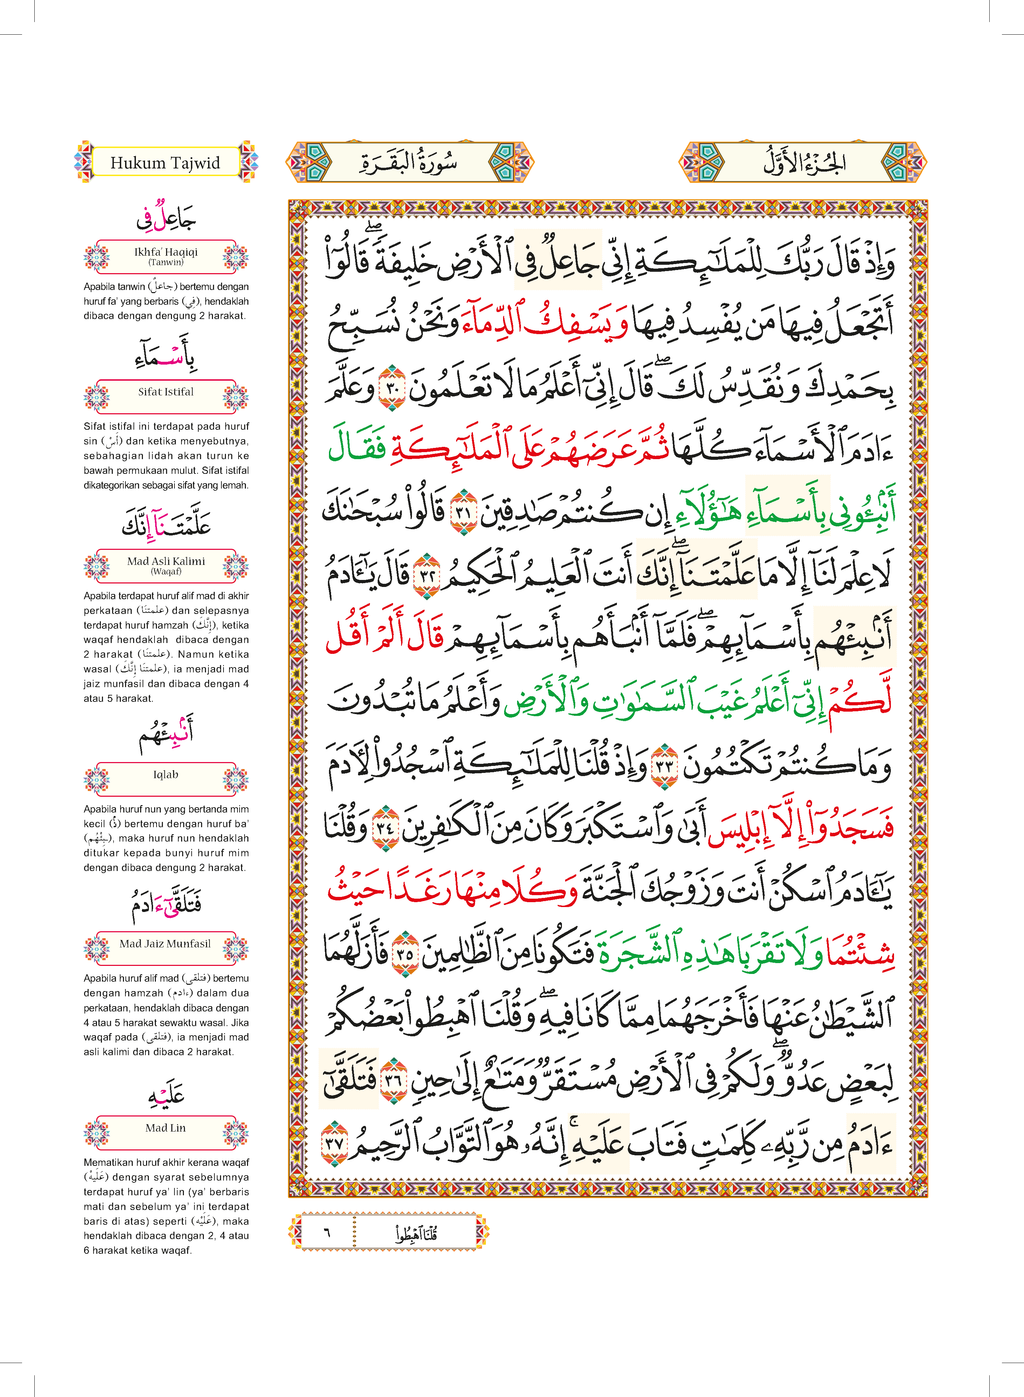 Hukum Tajwid
سُورَةُ البَقَرَةِ
الجُزْءُ الأَوَّلُ
جَاعِلٌ فِي
Ikhfa' Haqiqi
(Tanwin)
Apabila tanwin (جاعلٌ) bertemu dengan
huruf fa' yang berbaris (فِي), hendaklah
dibaca dengan dengung 2 harakat.
بِأَسْمَآءِ
Sifat Istifal
Sifat istifal ini terdapat pada huruf
sin (أَسْ) dan ketika menyebutnya,
sebahagian lidah akan turun ke
bawah permukaan mulut. Sifat istifal
dikategorikan sebagai sifat yang lemah.
عَلَّمْتَنَآ إِنَّكَ
Mad Asli Kalimi
(Waqaf)
Apabila terdapat huruf alif mad di akhir
perkataan (علمتنا) dan selepasnya
terdapat huruf hamzah (إِنَّكَ), ketika
waqaf hendaklah dibaca dengan
2 harakat (علمتنا). Namun ketika
wasal (علمتنا إِنَّكَ), ia menjadi mad
jaiz munfasil dan dibaca dengan 4
atau 5 harakat.
أَنۢبِئْهُم
Iqlab
Apabila huruf nun yang bertanda mim
kecil (نۢ) bertemu dengan huruf ba'
(بِئْهُم), maka huruf nun hendaklah
ditukar kepada bunyi huruf mim
dengan dibaca dengung 2 harakat.
فَتَلَقَّىٰٓ ءَادَمُ
Mad Jaiz Munfasil
Apabila huruf alif mad (فتلقى) bertemu
dengan hamzah (ءادم) dalam dua
perkataan, hendaklah dibaca dengan
4 atau 5 harakat sewaktu wasal. Jika
waqaf pada (فتلقى), ia menjadi mad
asli kalimi dan dibaca 2 harakat.
عَلَيْهِ
Mad Lin
Mematikan huruf akhir kerana waqaf
(عَلَيْهْ) dengan syarat sebelumnya
terdapat huruf ya' lin (ya' berbaris
mati dan sebelum ya' ini terdapat
baris di atas) seperti (عَلَيْهِ), maka
hendaklah dibaca dengan 2, 4 atau
6 harakat ketika waqaf.
وَإِذْ قَالَ رَبُّكَ لِلْمَلَـٰٓئِكَةِ إِنِّى جَاعِلٌ فِى ٱلْأَرْضِ خَلِيفَةً ۖ قَالُوٓا۟
أَتَجْعَلُ فِيهَا مَن يُفْسِدُ فِيهَا وَيَسْفِكُ ٱلدِّمَآءَ وَنَحْنُ نُسَبِّحُ
بِحَمْدِكَ وَنُقَدِّسُ لَكَ ۖ قَالَ إِنِّىٓ أَعْلَمُ مَا لَا تَعْلَمُونَ ٣٠ وَعَلَّمَ
ءَادَمَ ٱلْأَسْمَآءَ كُلَّهَا ثُمَّ عَرَضَهُمْ عَلَى ٱلْمَلَـٰٓئِكَةِ فَقَالَ
أَنۢبِـُٔونِى بِأَسْمَآءِ هَـٰٓؤُلَآءِ إِن كُنتُمْ صَـٰدِقِينَ ٣١ قَالُوا۟ سُبْحَـٰنَكَ
لَا عِلْمَ لَنَآ إِلَّا مَا عَلَّمْتَنَآ ۖ إِنَّكَ أَنتَ ٱلْعَلِيمُ ٱلْحَكِيمُ ٣٢ قَالَ يَـٰٓـَٔادَمُ
أَنۢبِئْهُم بِأَسْمَآئِهِمْ ۖ فَلَمَّآ أَنۢبَأَهُم بِأَسْمَآئِهِمْ قَالَ أَلَمْ أَقُل
لَّكُمْ إِنِّىٓ أَعْلَمُ غَيْبَ ٱلسَّمَـٰوَٰتِ وَٱلْأَرْضِ وَأَعْلَمُ مَا تُبْدُونَ
وَمَا كُنتُمْ تَكْتُمُونَ ٣٣ وَإِذْ قُلْنَا لِلْمَلَـٰٓئِكَةِ ٱسْجُدُوا۟ لِـَٔادَمَ
فَسَجَدُوٓا۟ إِلَّآ إِبْلِيسَ أَبَىٰ وَٱسْتَكْبَرَ وَكَانَ مِنَ ٱلْكَـٰفِرِينَ ٣٤ وَقُلْنَا
يَـٰٓـَٔادَمُ ٱسْكُنْ أَنتَ وَزَوْجُكَ ٱلْجَنَّةَ وَكُلَا مِنْهَا رَغَدًا حَيْثُ
شِئْتُمَا وَلَا تَقْرَبَا هَـٰذِهِ ٱلشَّجَرَةَ فَتَكُونَا مِنَ ٱلظَّـٰلِمِينَ ٣٥ فَأَزَلَّهُمَا
ٱلشَّيْطَـٰنُ عَنْهَا فَأَخْرَجَهُمَا مِمَّا كَانَا فِيهِ ۖ وَقُلْنَا ٱهْبِطُوا۟ بَعْضُكُمْ
لِبَعْضٍ عَدُوٌّ ۖ وَلَكُمْ فِى ٱلْأَرْضِ مُسْتَقَرٌّ وَمَتَـٰعٌ إِلَىٰ حِينٍ ٣٦ فَتَلَقَّىٰٓ
ءَادَمُ مِن رَّبِّهِۦ كَلِمَـٰتٍ فَتَابَ عَلَيْهِ ۚ إِنَّهُۥ هُوَ ٱلتَّوَّابُ ٱلرَّحِيمُ ٣٧
٦
قُلْنَا ٱهْبِطُوا۟